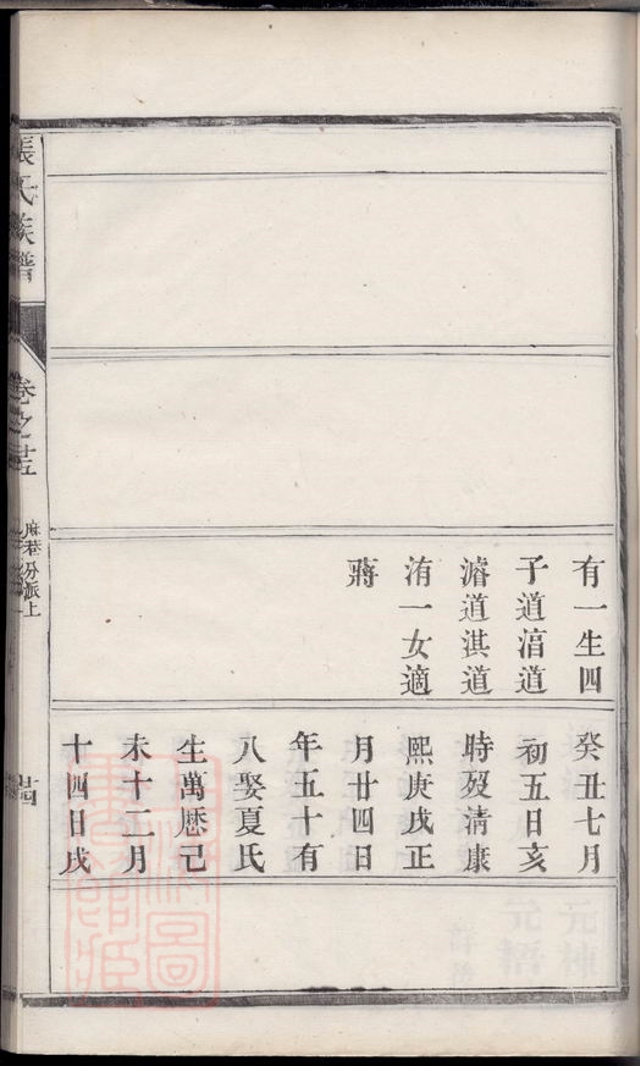 有一生四
子道湻道
濬道淇道
洧一女適
蔣
癸丑七月
初五日亥
時歿清康
熙庚戌正
月廿四日
年五十有
八娶夏氏
生萬厯己
未十二月
十四日戌
張氏族譜
卷之廿五
麻巷分派上